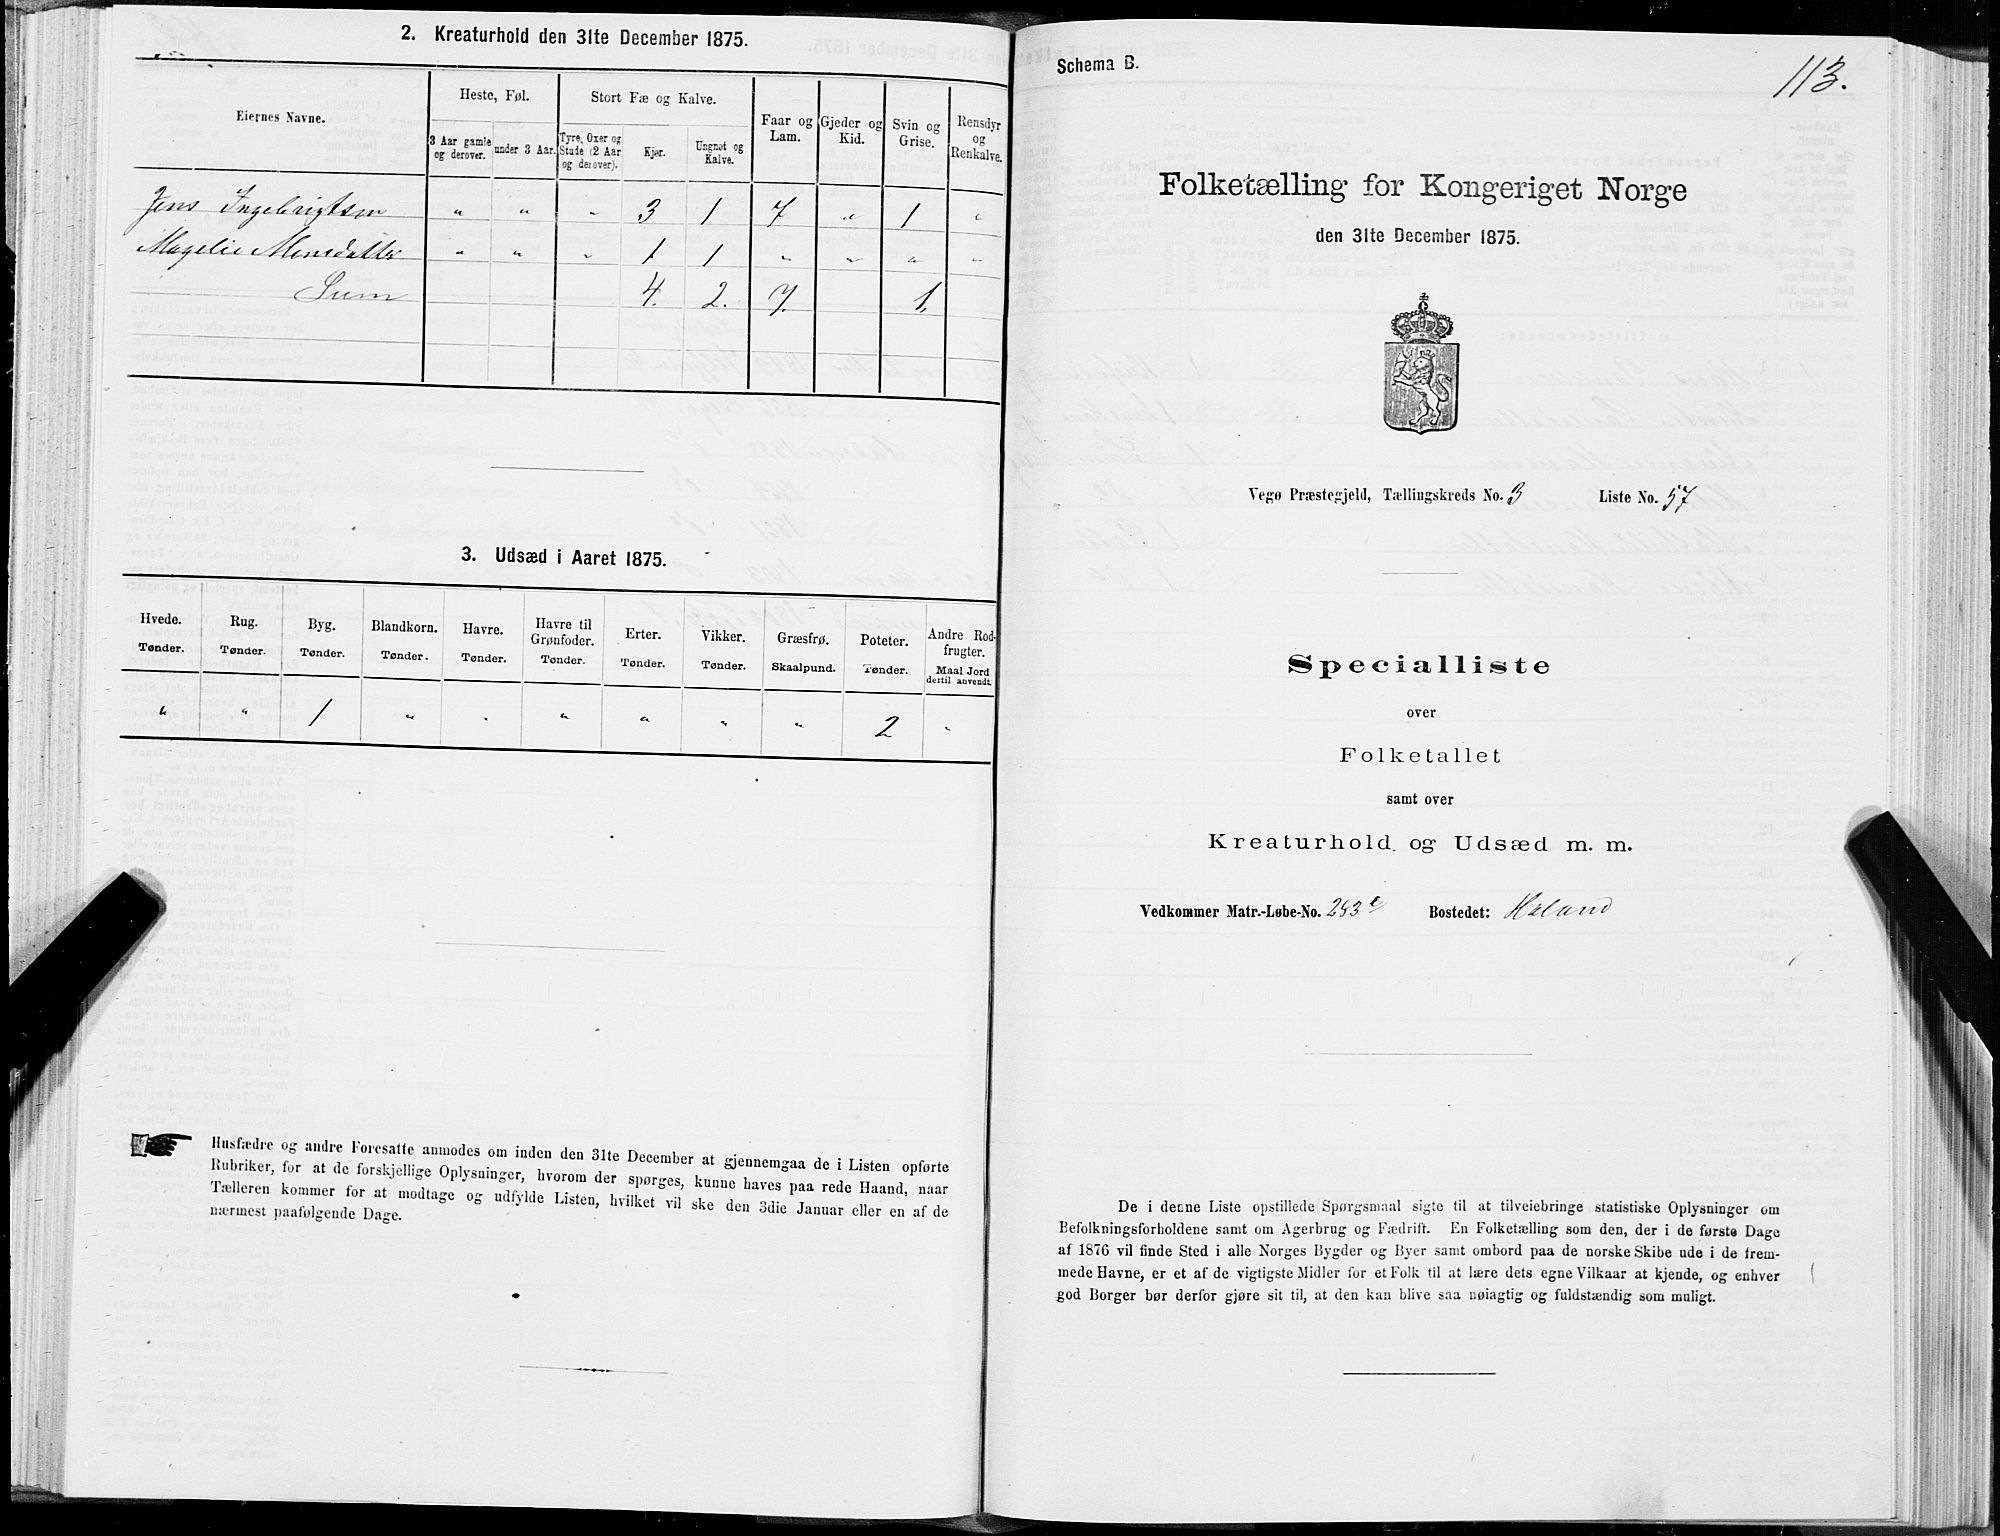 2. Kreaturhold den 31te December 1875.
Eiernes Navne.
Heste, Føl.
Stort Fæ og Kalve.
Faar og Lam.
Gjeder og Kid.
Svin og Grise.
Rensdyr og Renkalve.
3 Aar gamle og derover.
under 3 Aar.
Tyre, Oxer og Stude (2 Aar og derover).
Kjør.
Ungnøt og Kalve.
Jens Ingebrigtsen " " " 3 1 7 " 1 "
" " " 1 1 " " " "
Sum 4. 2. 7. 1.
3. Udsæd i Aaret 1875.
Hvede. Rug. Byg. Blandkorn. Havre. Havre til Grønfoder. Erter. Vikker. Græsfrø. Poteter. Andre Rodfrugter.
Tønder. Tønder. Tønder. Tønder. Tønder. Tønder. Tønder. Tønder. Skaalpund. Tønder. Maal Jord dertil anvendt.
" " 1 " " " " " " 2 "
Husfædre og andre Foresatte anmodes om inden den 31te December at gjennemgaa de i Listen opførte
Rubriker, for at de forskjellige Oplysninger, hvorom der spørges, kunne haves paa rede Haand, naar
Tælleren kommer for at modtage og udfylde Listen, hvilket vil ske den 3die Januar eller en af de
nærmest paafølgende Dage.
Schema B.
113.
Folketælling for Kongeriget Norge
den 31te December 1875.
Vegø Præstegjeld, Tællingskreds No. 3 Liste No. 57
Specialliste
over
Folketallet
samt over
Kreaturhold og Udsæd m. m.
Vedkommer Matr.-Løbe-No. 283 e Bostedet: Holand
De i denne Liste opstillede Spørgsmaal sigte til at tilveiebringe statistiske Oplysninger om
Befolkningsforholdene samt om Agerbrug og Fædrift. En Folketælling som den, der i de første Dage
af 1876 vil finde Sted i alle Norges Bygder og Byer samt ombord paa de norske Skibe ude i de frem-
mede Havne, er et af de vigtigste Midler for et Folk til at lære dets egne Vilkaar at kjende, og enhver
god Borger bør derfor gjøre sit til, at den kan blive saa nøiagtig og fuldstændig som muligt.